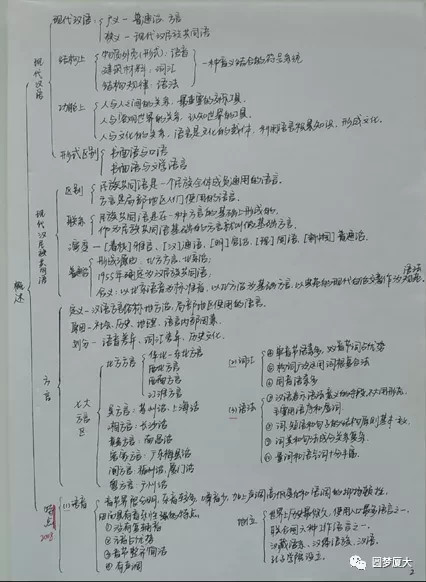 现代汉语
广义—普通话、方言
狭义—现代汉民族共同语
现代汉语
结构上
物质外壳(形式):语音
建筑材料:词汇
结构规律:语法
一种音义结合的符号系统
功能上
人与人之间的关系,最重要的交际工具
人与客观世界的关系,认知世界的工具
人与文化的关系,语言是文化的载体,利用语言积累知识,形成文化。
形式区别
书面语与口语
书面语与文学语言
概述
现代汉民族共同语
区别
民族共同语是一个民族全体成员通用的语言。
方言是局部地区人们使用的语言。
联系
民族共同语是在一种方言的基础上形成的。
作为民族共同语基础的方言就叫做基础方言。
[春秋]雅言、[汉]通语、[明]官话、
国语、[新中国]普通话。
普通话
形成源由:北方方言、北京话;
1955年确定为汉民族共同语。
含义:以北京语音为标准音,以北方话为基础方言,以典范的现代白话文著作为语法规范。
方言
定义—汉语方言俗称地方话,局部地区使用的语言。
原因—社会、历史、地理、语言内部因素。
划分—语音差异、词汇差异、历史文化
七大方言区
北方方言
华北—东北方言
西北方言
西南方言
江淮方言
吴方言:苏州话、上海话
湘方言:长沙话
赣方言:南昌话
客家方言:广东梅县话
闽方言:福州话、厦门话
粤方言:广州话
特点
2003
(1)语音
音节界限分明,乐音较多,噪音少,加上声调高低变化和语调的抑扬顿挫,
因而具有音乐性强的特点。
①没有复辅音
②元音占优势
③音节整齐简洁
④有声调
(2)词汇
①单音节语素多,双音节词占优势
②构词广泛运用词根复合法
③同音语素多
(3)语法
①汉语表示语法意义的手段,不大用形态,
主要用语序和虚词
②词、短语和句子的结构原则基本一致
③词类和句法成分关系复杂
④量词和语气词十分丰富
地位
世界上历史最悠久、使用人口最多语言之一,
联合国六种工作语言之一。
汉藏语系、汉语语族、汉语
圆梦厦大
2